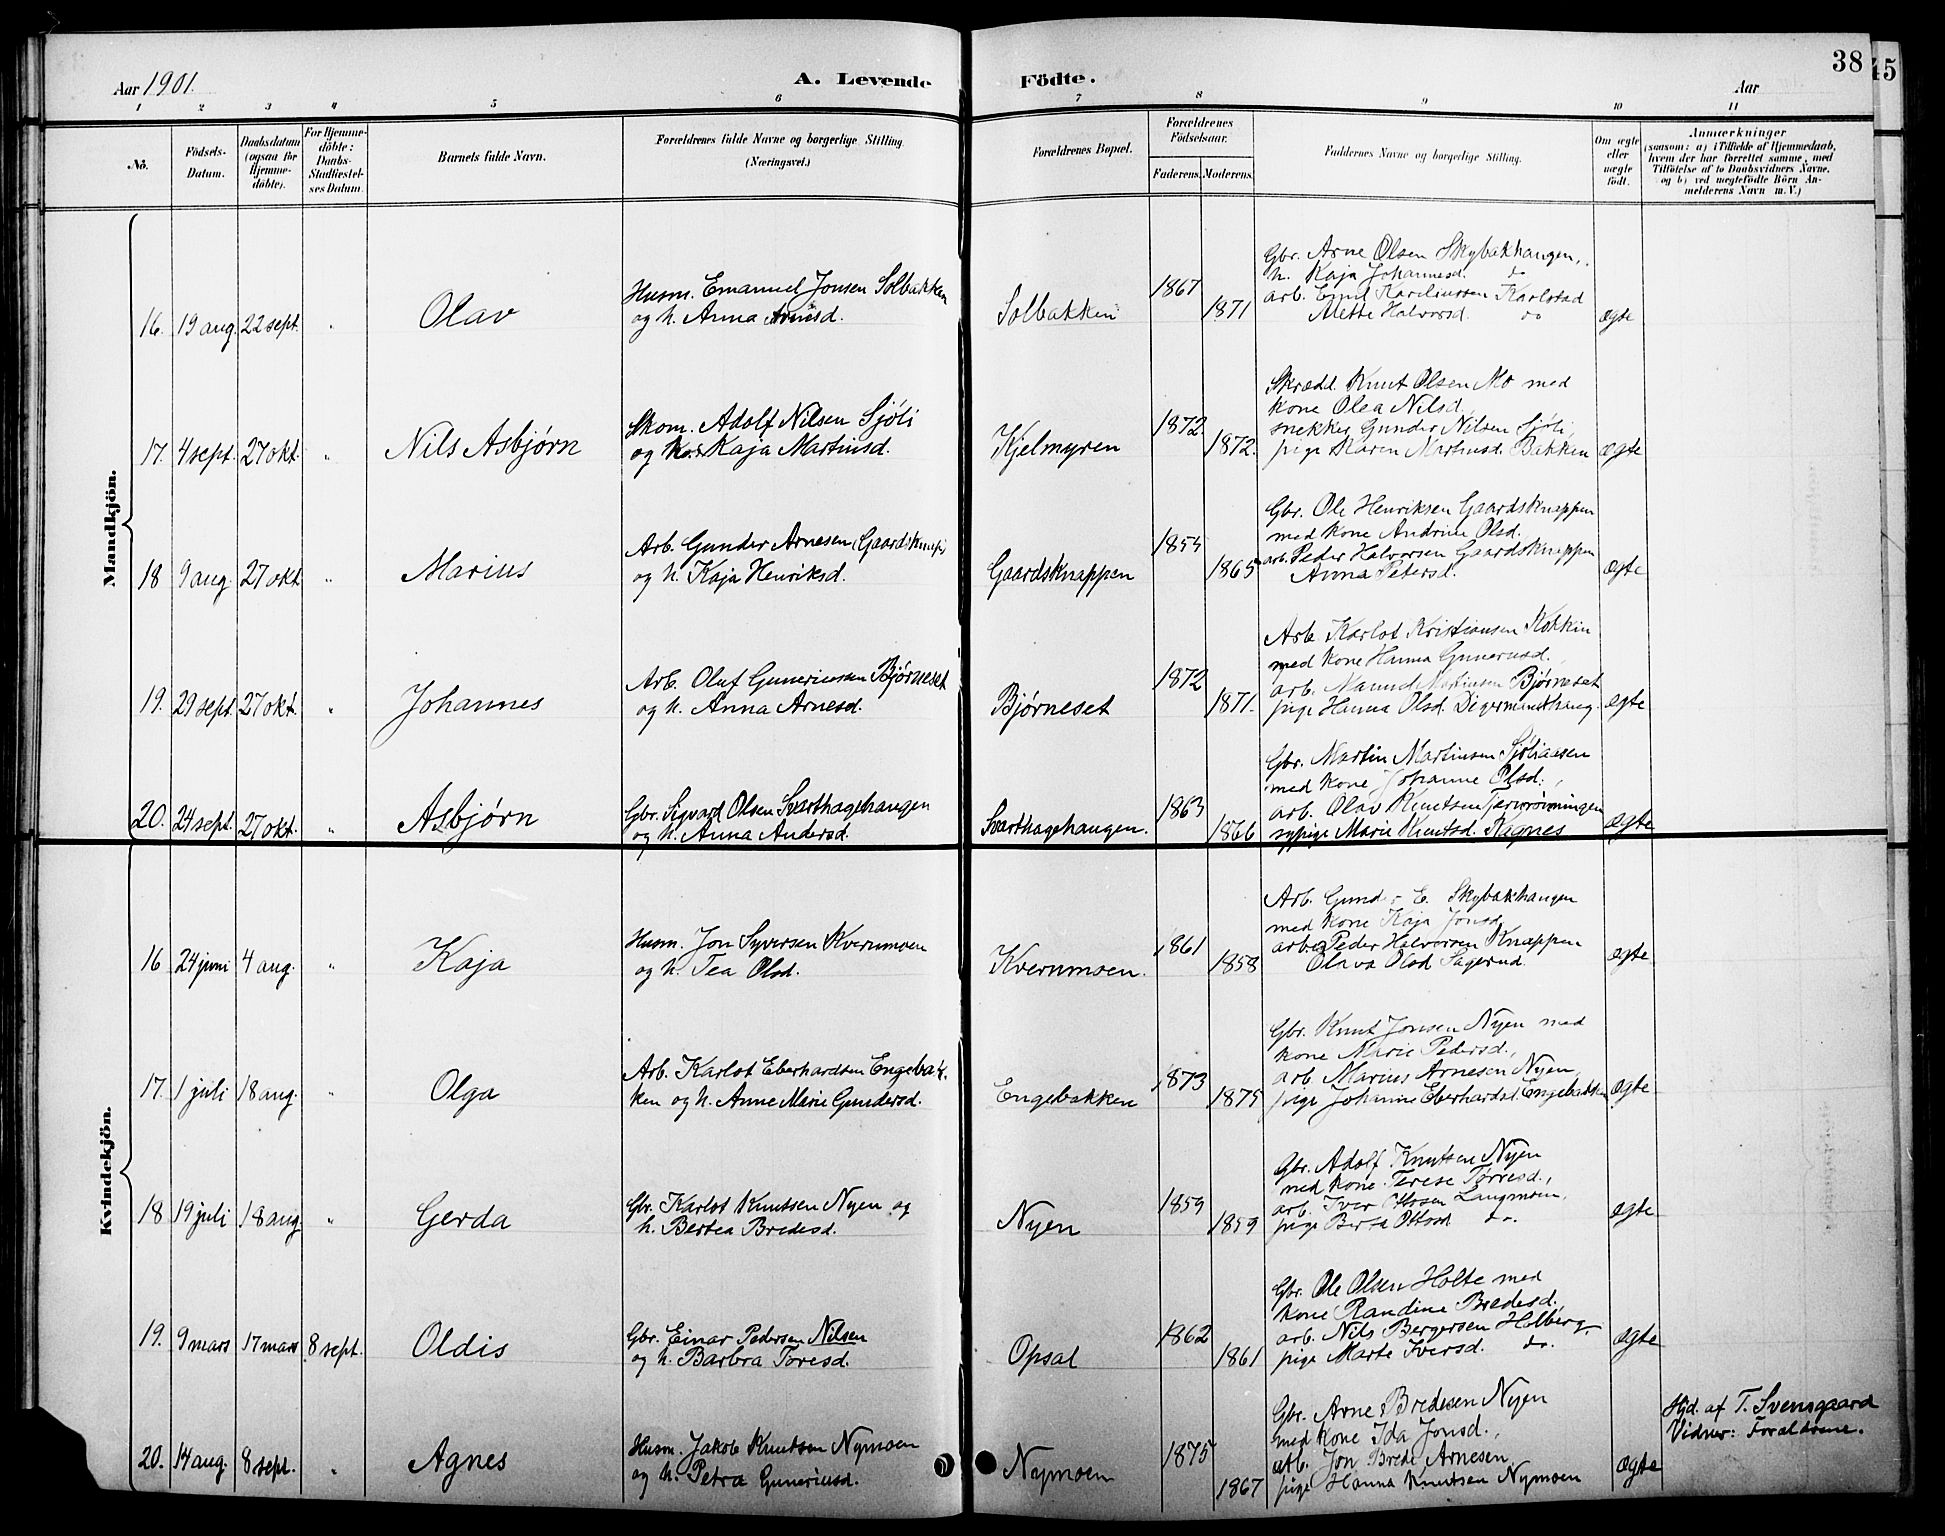 Aar 1901.
A. Levende
Födte.
Aar
38
45
1 2 3 4 5 6 7 8 9 10 11
No.
Födsels-
Datum.
Daabsdatum
(ogsaa för
Hjemme-
döbte).
For Hjemme-
döbte:
Daabs-
Stadfæstel-
ses Datum.
Barnets fulde Navn.
Forældrenes fulde Navne og borgerlige Stilling.
(Næringsvei.)
Forældrenes Bopæl.
Forældrenes
Födselsaar.
Faderens.
Moderens.
Faddernes Navne og borgerlige Stilling.
Om ægte
eller
uægte
födt.
Anmærkninger
(saasom: a) i Tilfælde af Hjemmedaab,
hvem der har forrettet samme, med
Tilföielse af to Daabsvidners Navne.
og b) ved uægtefödte Börn An-
melderens Navn m. V.)
Mandkjön.
16. 19 aug. 22 sept. " Olav
Husm. Emanuel Jonsen Solbakken
og h. Anna Arnesd.
Solbakken 1867 1871
Gbr. Arne Olsen Skybakhangen,
h. Kaja Johannesd. do
arb. Emil Karlinssen Karlstad
Alette Halvorsd. do
ægte
17. 4 sept. 27 okt. " Nils Asbjørn
Skom. Adolf Nilsen Sjöli
og Kaja Martinsd.
Kjelmyren 1872. 1872.
Skrædd. Knut Olsen Mo med
kone Olea Nilsd.,
snekker Gunder Nilsen Sjöli,
pige Karen Martinsd. Bakken
ægte
18 9 aug. 27 okt " Marius
Arb. Gunder Arnesen (Gaardsknap)
og h. Kaja Henriksd.
Gaardsknappen 1865
Gbr. Ole Henriksen Gaardsknappen
med kone Andrine Olsd.
arb. Peder Halvorsen Gaardsknappen
Anna Petersd.
ægte
19. 29 sept. 27 okt. " Johannes
Arb. Oluf Guneriussen Bjørneset
og h. Anna Arnesd.
Bjørneset 1872 1871.
Arb. Karlot Kristiansen Kokkin
med kone Hanna Gunerusd.,
arb. Martinsen Bjørneset
pige Hanna Olsd.
ægte
20. 24 sept. 27 okt. " Asbjørn
Gbr. Sigvard Olsen Svarthagehaugen
og h. Anna Andersd.
Svarthagehaugen. 1863 1866
Gbr. Martin Martinsen Sjöliaasen
med kone Johanne Olsd.,
arb. Olav Knutsen
sypige Marie Knutsd. Kagnes
ægte
Kvindekjön.
16 24 juni 4 aug. " Kaja
Husm. Jon Syversen Kvernmoen
og h. Tea Olsd.
Kvernmoen. 1861 1858
Arb. Gunder E. Skybakhangen
med kone Kaja Jonsd.
arb. Peder Halvorsen Knappen
Olava Olsd Sagerud.
ægte
17. 1 juli 18 aug. " Olga
Arb. Karlot Eberhardsen Engebak-
ken og h. Anne Marie Gundersd.
Engebakken 1873 1875
Gbr. Knut Jonsen Nyen med
kone Marie Pedersd.,
arb. Marius Arnesen Nyen,
pige Johanne Eberhardsd. Engebakken
ægte
18 19 juli 18 aug. " Gerda
Gbr. Karlot Knutsen Nyen og
h. Bertea Bredesd.
Nyen 1859 1859
Gbr. Adolf Knutsen Nyen
med kone Terese Torresd.,
arb. Iver Ottosen Langmoen,
pige Berta Ottosd do.
ægte
19. 9 mars 17 mars 8 sept. Oldis
Gbr. Einar Pedersen Nilsen
og h. Barbra Toresd.
Opsal 1862 1861
Gbr. Ole Olsen Holte med
kone Randine Bredesd.
arb. Nils Bergersen Holberg,
pige Marte Iversd. do.
ægte
20. 14 aug. 8 sept. " Agnes
Husm. Jakob Knutsen Nymoen
og h. Petra Guneriusd.
Nymoen 1875 1867
Gbr. Arne Bredesen Nyen
med kone Ida Jonsd.,
arb. Jon Brede Arnesen
pige Hanna Knutsen Nymoen
ægte
Hjd. af T. Svensgaard
Vidner: Forældrene.